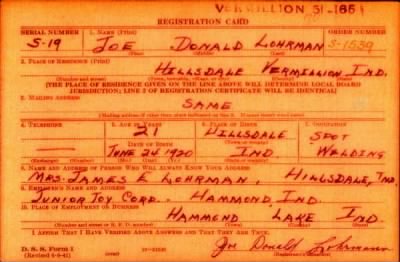 VERMILLION 31-165
REGISTRATION CARD
SERIAL NUMBER 1. NAME (Print) ORDER NUMBER
S-19 JOE DONALD LOHRMAN S-1539
(First) (Middle) (Last)
2. PLACE OF RESIDENCE (Print)
HILLSDALE VERMILLION IND.
(Number and street) (Town, township, village, or city) (County) (State)
[THE PLACE OF RESIDENCE GIVEN ON THE LINE ABOVE WILL DETERMINE LOCAL BOARD
JURISDICTION; LINE 2 OF REGISTRATION CERTIFICATE WILL BE IDENTICAL]
3. MAILING ADDRESS
SAME
[Mailing address if other than place indicated on line 2. If same insert word same]
4. TELEPHONE 5. AGE IN YEARS 6. PLACE OF BIRTH 7. OCCUPATION
21 HILLSDALE SPOT
DATE OF BIRTH
— JUNE 24 1920 IND. WELDING
(Exchange) (Number) (Mo.) (Day) (Yr.) (State or country)
8. NAME AND ADDRESS OF PERSON WHO WILL ALWAYS KNOW YOUR ADDRESS
MRS. JAMES E LOHRMAN, HILLSDALE, IND.
9. EMPLOYER'S NAME AND ADDRESS
JUNIOR TOY CORP. HAMMOND, IND.
10. PLACE OF EMPLOYMENT OR BUSINESS
HAMMOND LAKE IND.
(Number and street or R. F. D. number) (Town) (County) (State)
I AFFIRM THAT I HAVE VERIFIED ABOVE ANSWERS AND THAT THEY ARE TRUE.
D. S. S. Form 1
(Revised 6-9-41) (over) Joe Donald Lohrmann
(Registrant's signature)